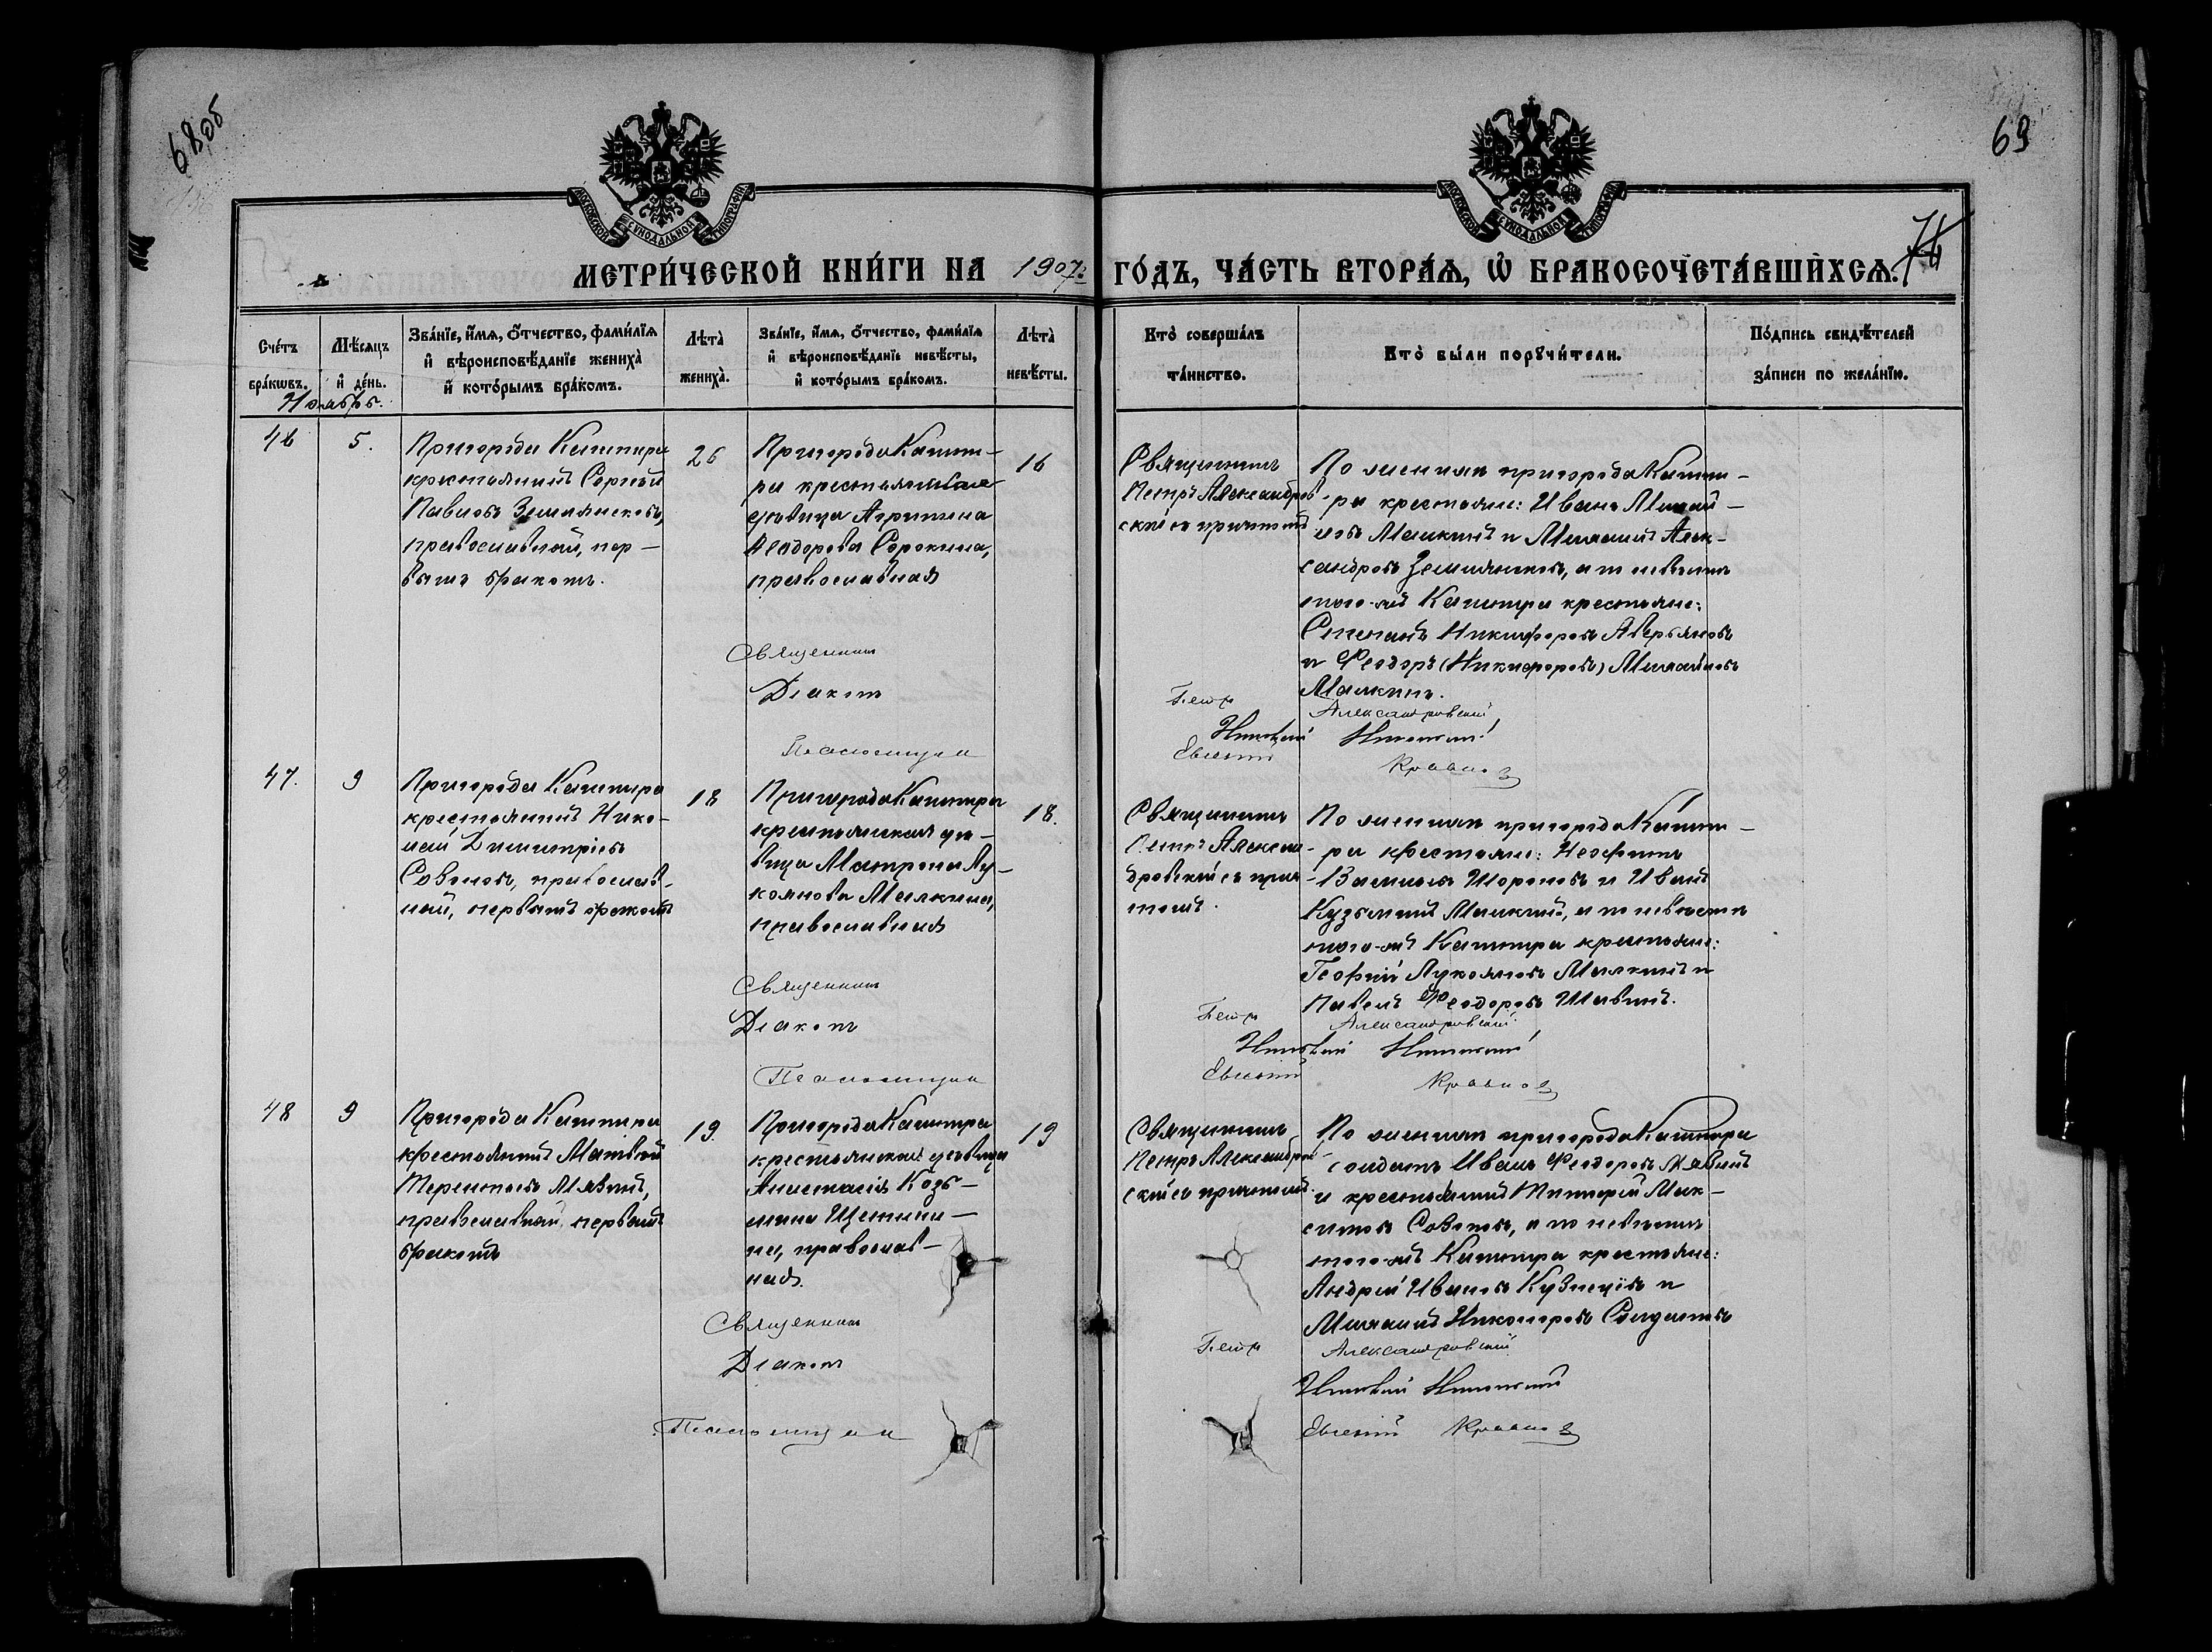 68об
69
МОСКОВСКОЙ СѴНОДАЛЬНОЙ ТИПОГРАФІИ
МОСКОВСКОЙ СѴНОДАЛЬНОЙ ТИПОГРАФІИ
МЕТРИ́ЧЕСКОЙ КНИ́ГИ НА 1907 ГО́ДЪ, ЧА́СТЬ ВТОРА́Ѧ, Ѡ҆ БРАКОСОЧЕТА́ВШИХСѦ.
Сче́тъ бра́кѡвъ.
Мѣ́сяцъ и҆ де́нь.
Зва́нїе, и҆́мѧ, ѻ҆́тчество, фами́лїѧ
и҆ вѣроисповѣ́данїе жениха̀
и҆ кото́рымъ бра́комъ.
Лѣта̀ жениха̀.
Зва́нїе, и҆́мѧ, ѻ҆́тчество, фами́лїѧ
и҆ вѣроисповѣ́данїе невѣ́сты,
и҆ кото́рымъ бра́комъ.
Лѣта̀ невѣ́сты.
Кто̀ соверша́лъ та́инство.
Кто̀ бы́ли порꙋчи́тели.
По́дпись свидѣ́телей
за́писи по жела́нїю.
Ноябрь.
46
5.
Пригорода Каштира
крестьянинъ Сергѣй
Павловъ Землянсковъ,
православный, пер-
вымъ бракомъ.
26
Пригорода Кашти-
ра крестьянская
дѣвица Агрипина
Ѳеодорова Сорокина,
православная
16
Священникъ
Петръ Александров-
скій съ причтомъ.
По женихѣ пригорода Кашти-
ра крестьяне: Иванъ Михай-
ловъ Малкинъ и Михаилъ Алек-
сандровъ Землянсковъ, а по невѣстѣ
того-же Каштира крестьяне:
Степанъ Никифоровъ Аверьяновъ
и Ѳеодоръ (Никифоровъ) Михайловъ
Малкинъ.
Священникъ Петръ Александровскій
Діаконъ
Псаломщикъ Евгеній
47.
9
Пригорода Каштира
крестьянинъ Нико-
лай Димитріевъ
Созоновъ, православ-
ный, первымъ бракомъ
18
Пригорода Каштира
крестьянская дѣ-
вица Матрона Лу-
коянова Малкина,
православная
18.
Священникъ
Петръ Алексан-
дровскій съ прич-
томъ.
По женихѣ пригорода Кашти-
ра крестьяне: Неофитъ
Васильевъ Шороховъ и Иванъ
Кузьминъ Малкинъ, а по невѣстѣ
того-же Каштира крестьяне:
Георгій Лукояновъ Малкинъ и
Павелъ Ѳеодоровъ Шавинъ.
Священникъ Петръ Александровскій
Діаконъ
Псаломщикъ Евгеній
48
9
Пригорода Каштира
крестьянинъ Матвѣй
Терентьевъ Мязинъ,
православный, первымъ
бракомъ
19.
Пригорода Каштира
крестьянская дѣвица
Анастасія Козь-
мина Щетини-
на, православ-
ная.
19
Священникъ
Петръ Александров-
скій съ причтомъ.
По женихѣ пригорода Каштира
солдатъ Иванъ Ѳеодоровъ Мязинъ
и крестьянинъ Тимофей Мак-
симовъ Созоновъ, а по невѣстѣ
того-же Каштира крестьяне:
Андрей Ивановъ Кузнецовъ и
Михаилъ Никоноровъ Солдатовъ
Священникъ Петръ Александровскій
Діаконъ
Псаломщикъ Евгеній